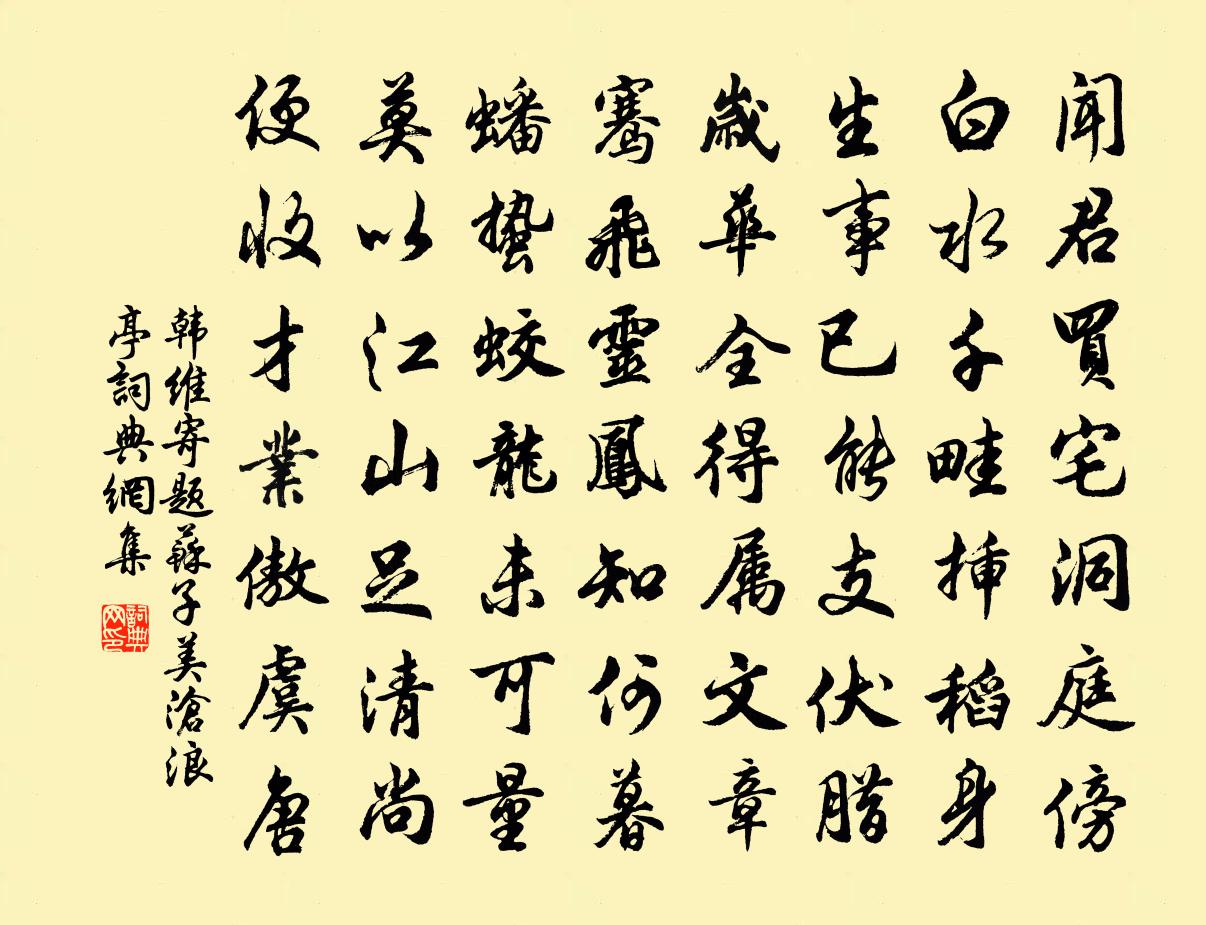 闻君買宅洞庭傍
白水千畦挿稻身
生事已能支伏腊
歲華全得属文章
騫飛靈鳳知何暮
蟠蟄蛟龍未可量
莫以江山足清尚
便收才業傲虞唐
韩維寄题蘇子美滄浪
亭詞典網集
詞典
网印